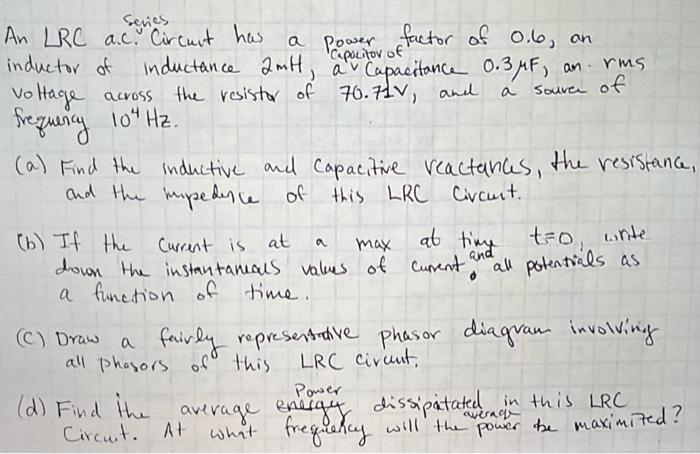 Series
An LRC a.c. Circuit has a Power factor of 0.6, an
Capacitor of
inductor of inductance 2mH, a Capacitance 0.3μF, an rms
Voltage across the resistor of 70.71V, and a source of
frequency 10⁴ Hz.
(a) Find the inductive and Capacitive reactances, the resistance,
and the impedence of this LRC Circuit.
(b) If the Current is at a max at time t=0, write
down the instantaneous values of current and all potentials as
a function of time.
(C) Draw a fairly representative phasor diagram involving
all phasors of this LRC circuit.
Power
(d) Find the average energy dissipatated in this LRC
Circuit. At what frequency will the average power be maximized?